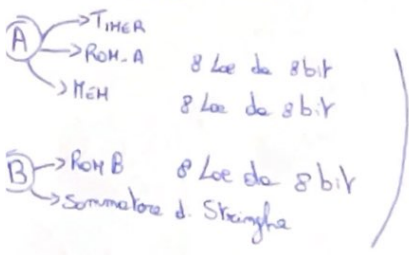 A → TIMER
→ ROM-A 8 Loc da 8bit
→ MEM 8 Loc da 8bit
B → ROM B 8 Loc da 8bit
→ Sommatore di Stringhe